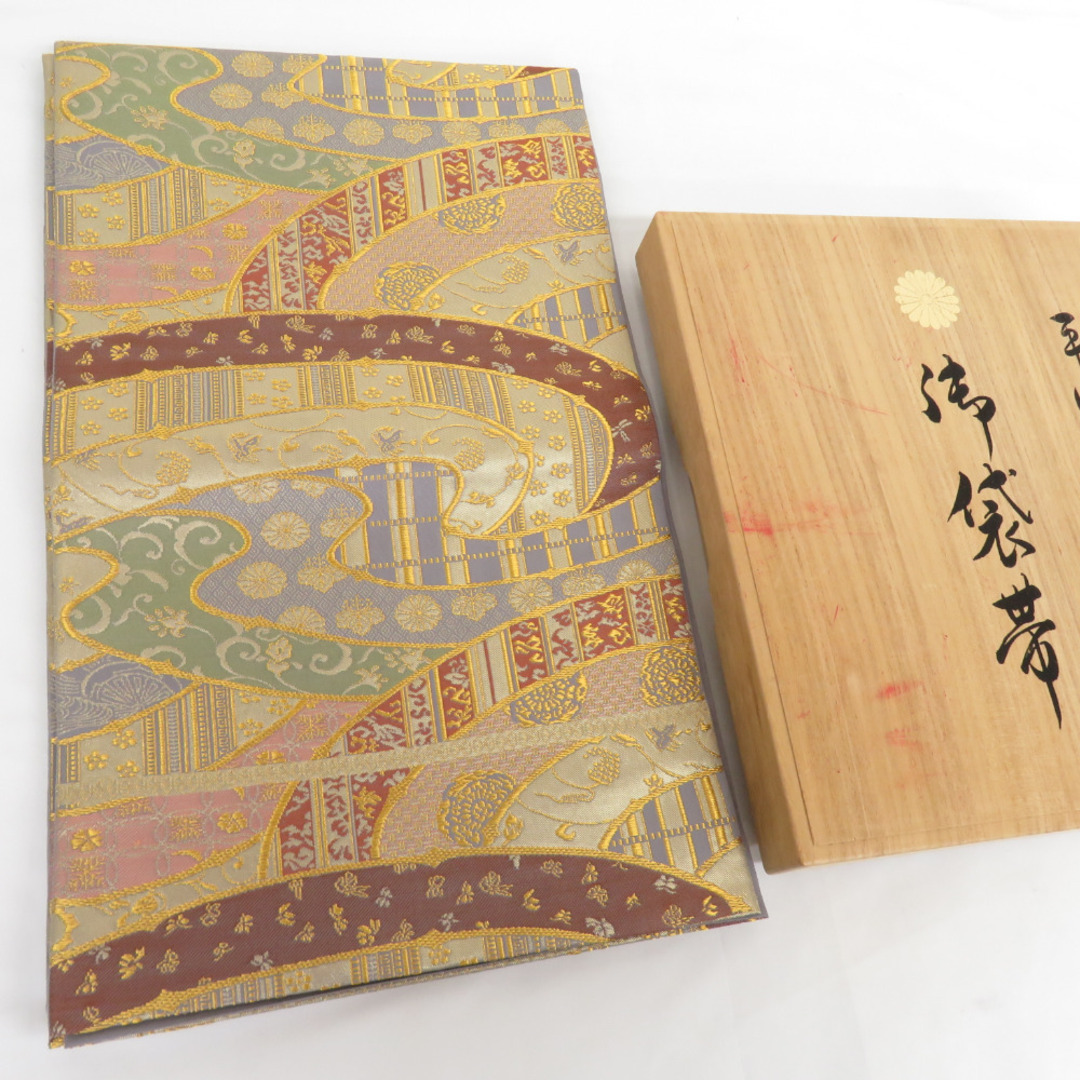 御袋帯